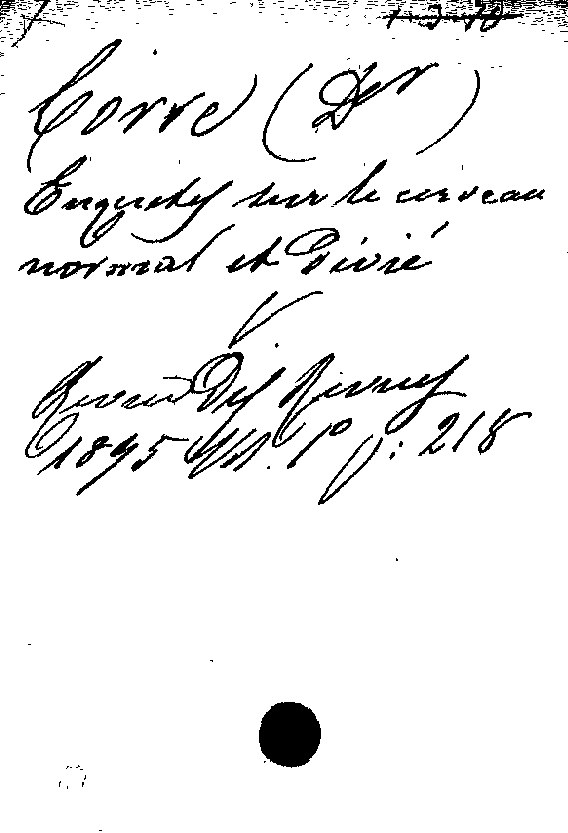 Corre (Dr)
Enquetes sur le cerveau
normal et Dévié
Revue Des Revues
1895 Vol. 1º p: 218